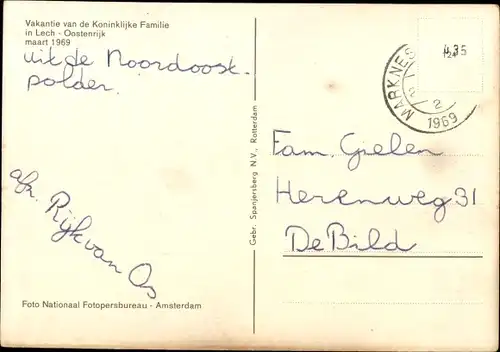 Vakantie van de Koninklijke Familie
in Lech - Oostenrijk
maart 1969
uit de Noordoost-
polder.
afz. Rijk van Os
Foto Nationaal Fotopersbureau - Amsterdam
Gebr. Spanjersberg N.V., Rotterdam
MARKNES
2
1969
4.35
Fam. Gielen
Herenweg 31
De Bild